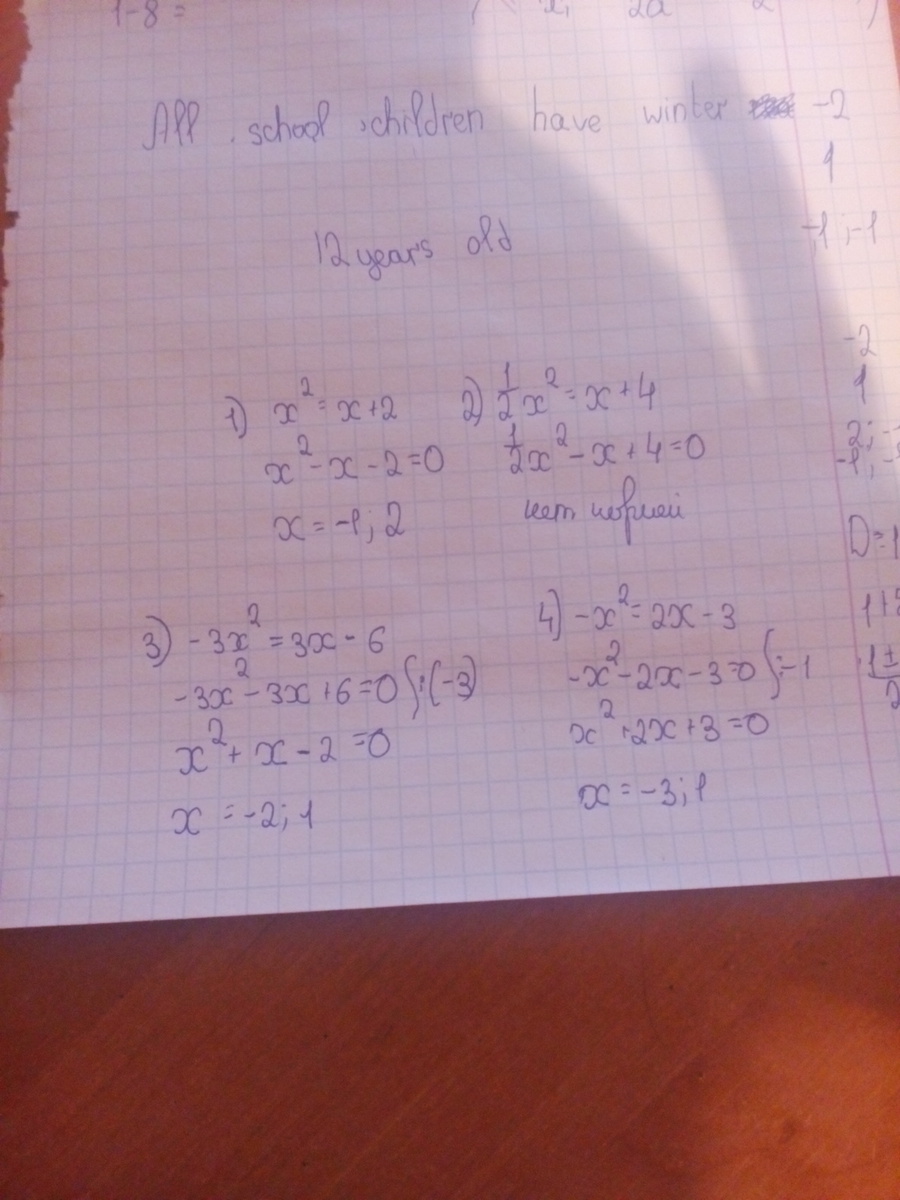 1-8 =
x, 2a 2 )
All school children have winter
-2
1
-1 ; -1
12 years old
-2
1
2; -
-1; -
1) x² = x+2
x² - x - 2 = 0
x = -1; 2
2) ½x² = x+4
½x² - x + 4 = 0
нет корней
D = 1
1+8
1±
2
3) -3x² = 3x - 6
-3x² - 3x + 6 = 0 ∫:(-3)
x² + x - 2 = 0
x = -2; 1
4) -x² = 2x - 3
-x² - 2x - 3 = 0 ∫:-1
x² + 2x + 3 = 0
x = -3; 1